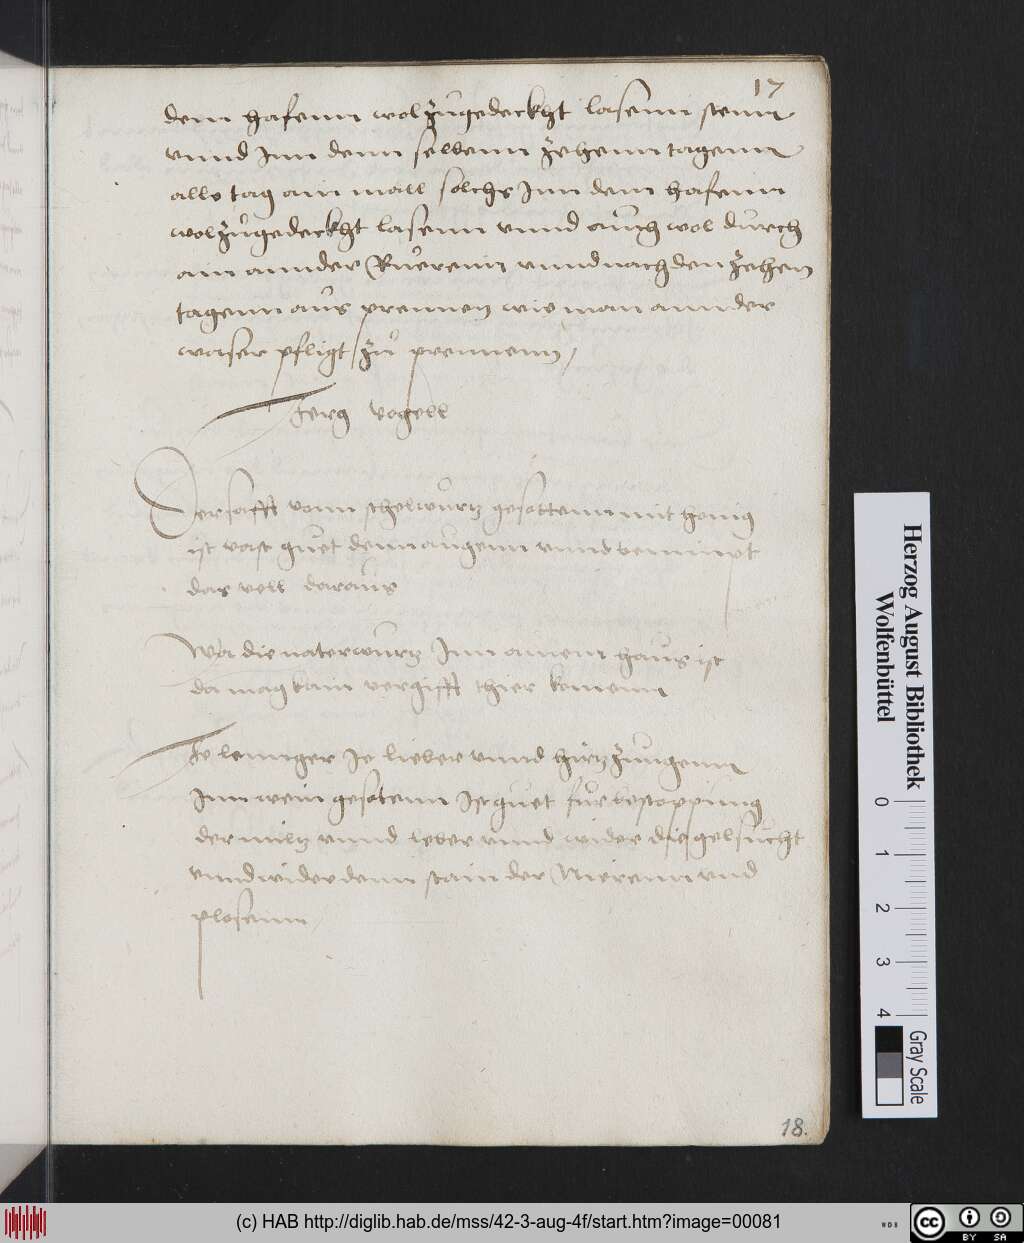 17
dem hafenn wol zůgedeckht lasenn stenn
vnnd Inn denn selbenn zehenn tagenn
alle tag ain mall solchs Inn dem hafenn
wol zůgedeckht lasenn vnnd aůch wol důrch
ain annder Růerenn vnnd nach den zehen
tagenn aůs prennen wie man annder
waser pfligt zů prennenn
Jerg vogell
Der safft vonn schelwůrtz gesottenn mit honig
ist vast gůet denn aůgenn vnnd benimpt
das vell daraůs
Wa die naterwůrtz Inn ainem haůs ist
da mag kain vergifft thier komenn
Je lennger Je lieber vnnd hirtzzůngenn
Inn wein gesotenn Ist gůet für bestoppůng
der miltz vnnd leber vnnd wider die gelsůcht
vnnd wider denn stain der Nierenn vnd
plosenn
18.
Herzog August Bibliothek
Wolfenbüttel
0 1 2 3 4
Gray Scale
(c) HAB http://diglib.hab.de/mss/42-3-aug-4f/start.htm?image=00081
WDB
cc BY SA